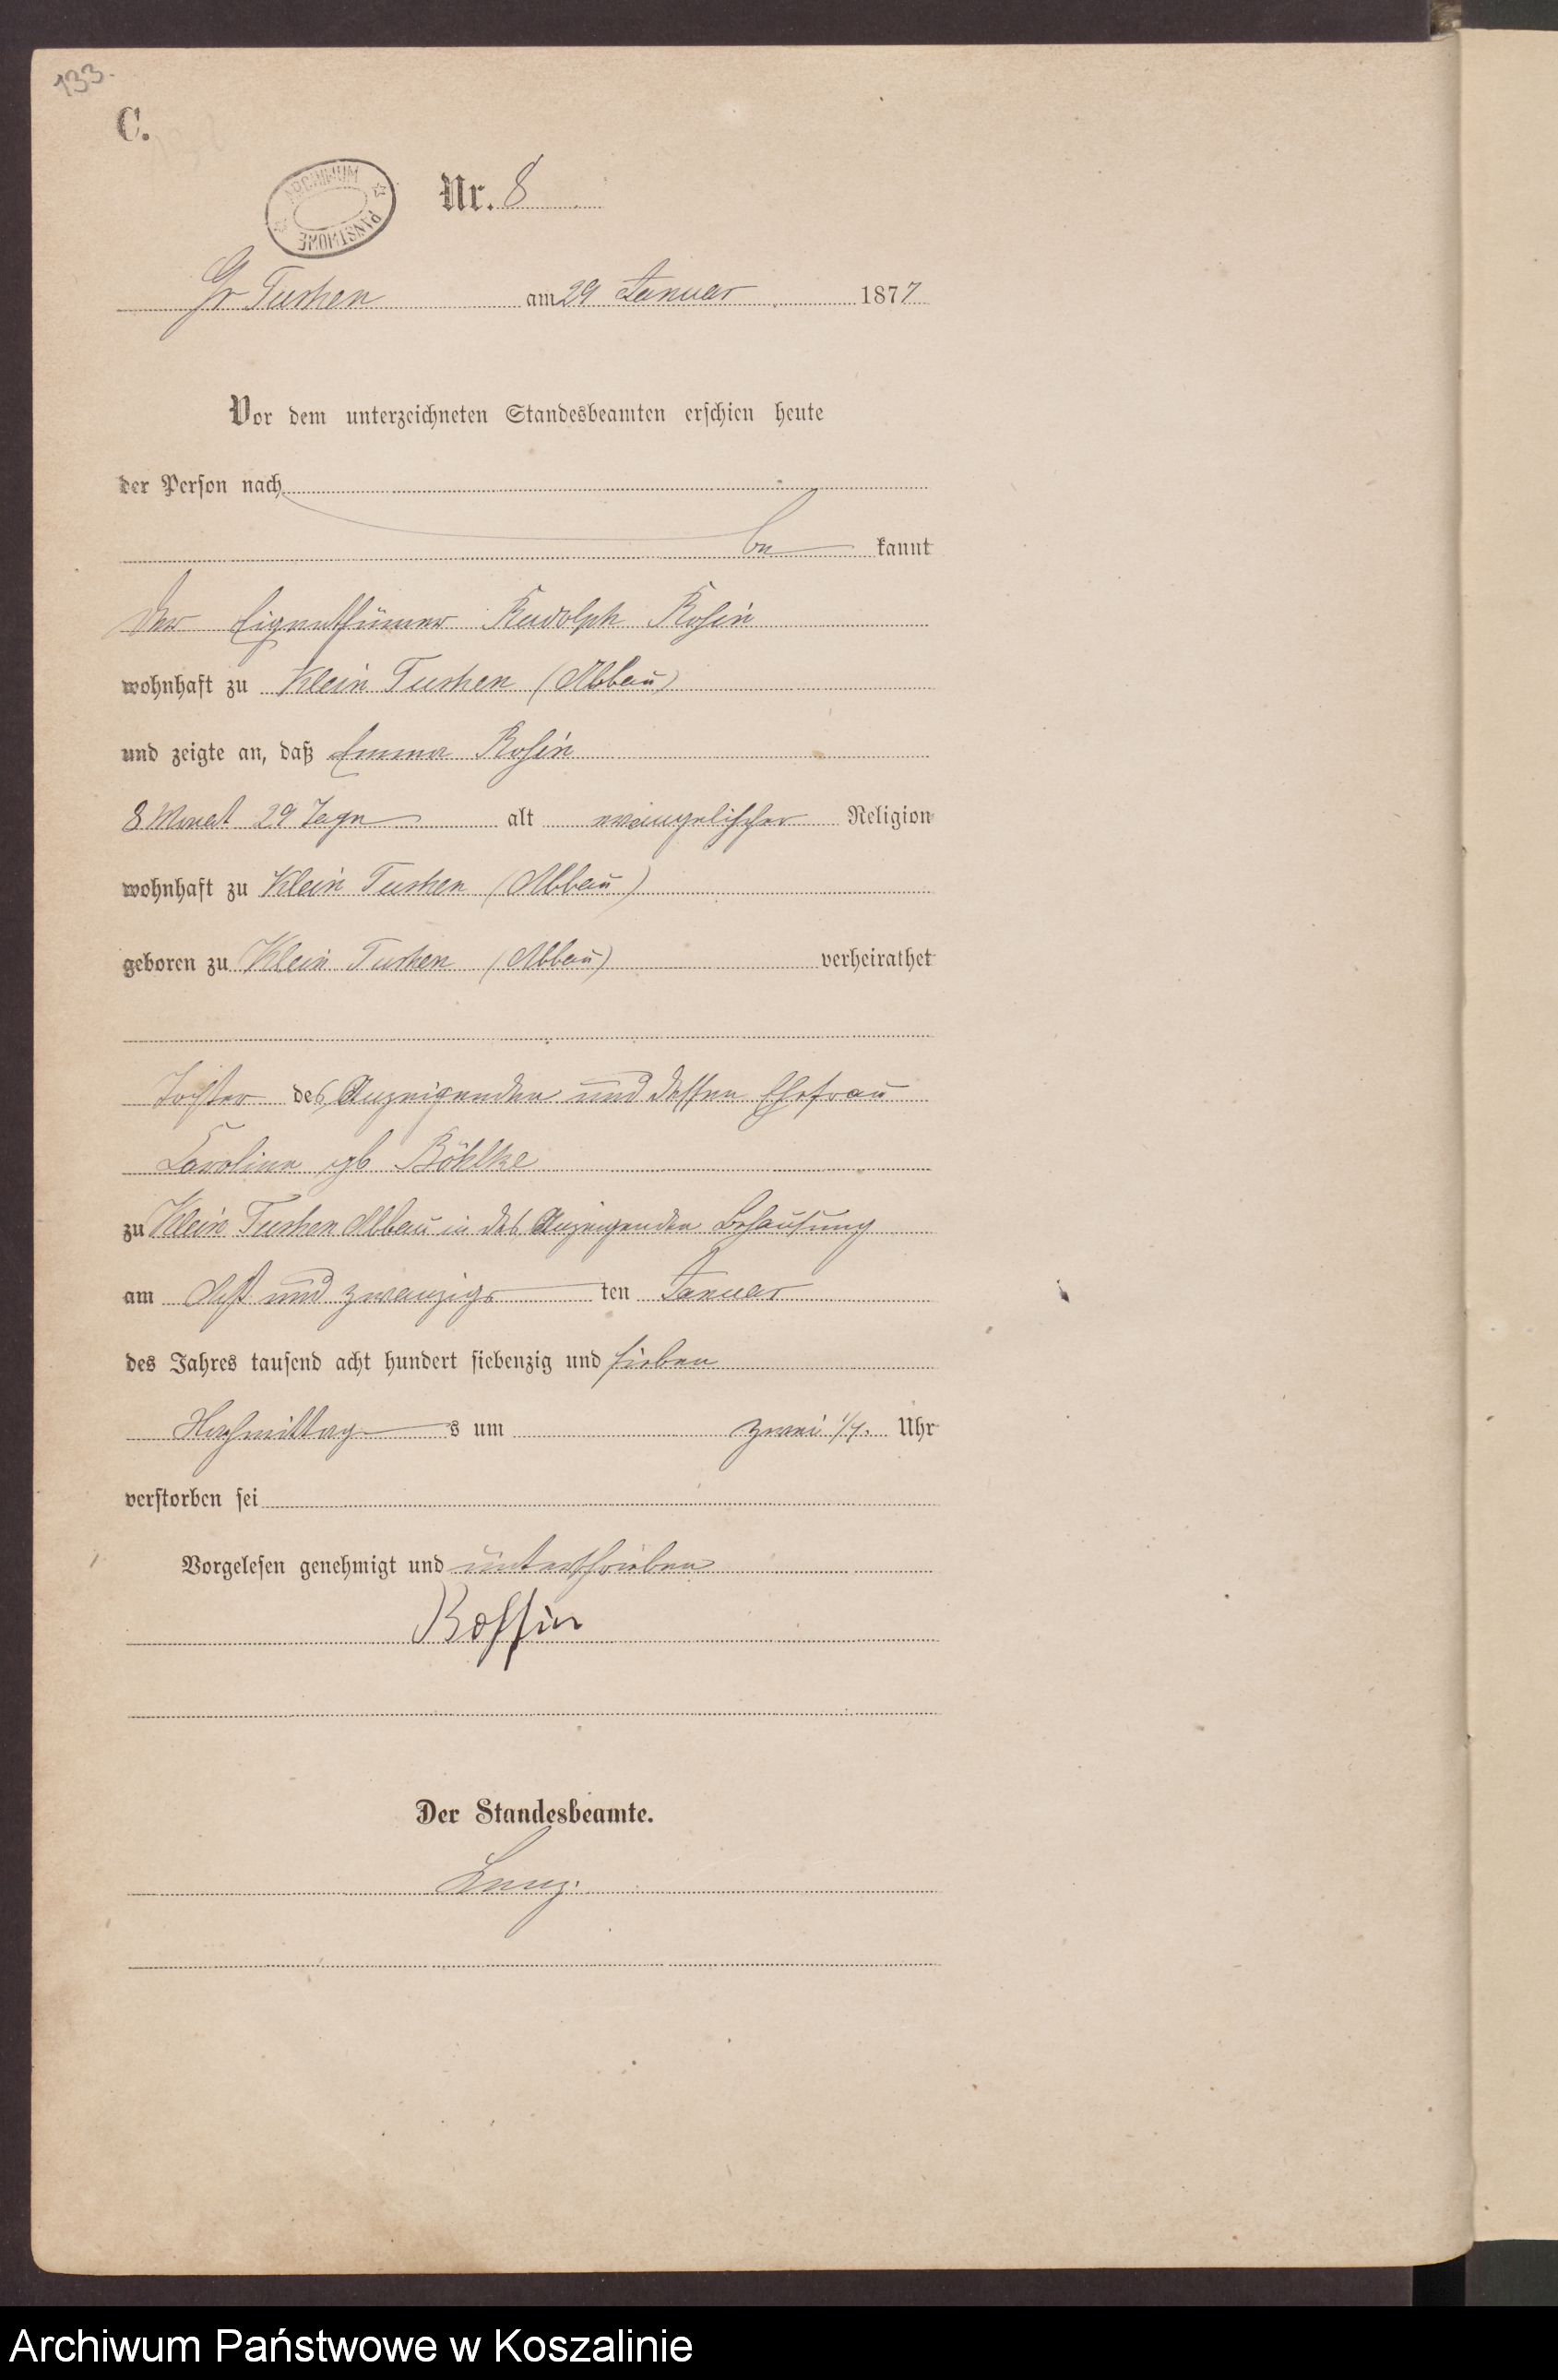 133.
C.
ARCHIWUM PAŃSTWOWE
Nr. 8
Gr Tuchen am 29 Januar 1877
Vor dem unterzeichneten Standesbeamten erschien heute
der Person nach
be kannt
der Eigenthümer Rudolph Rosin
wohnhaft zu Klein Tuchen (Abbau)
und zeigte an, daß Emma Rosin
8 Monat 29 Tage alt evangelischer Religion
wohnhaft zu Klein Tuchen (Abbau)
geboren zu Klein Tuchen (Abbau) verheirathet
Tochter des Anzeigenden und dessen Ehefrau
Caroline gb Böhlke
zu Klein Tuchen Abbau in des Anzeigenden Behausung
am Acht und zwanzigs ten Januar
des Jahres tausend acht hundert siebenzig und sieben
Nachmittag s um zwei 1/4. Uhr
verstorben sei
Vorgelesen genehmigt und unterschrieben
Rossin
Der Standesbeamte.
Archiwum Państwowe w Koszalinie